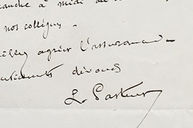 à midi
nos collègues.
agréer l'assurance
sentiments dévoués
L. Pasteur